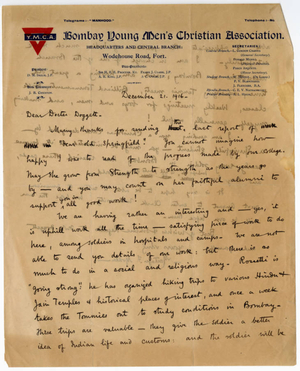 Telegrams:- "MANHOOD."
Telephone:- No
Y.M.C.A.
Bombay Young Men's Christian Association.
HEADQUARTERS AND CENTRAL BRANCH:
Wodehouse Road, Fort.
SECRETARIES
December 21. 1916.
Dear Doctor Doggett -
Many thanks for sending the last report of work
done in "Dear Old Springfield". You cannot imagine how
happy I was to read of the progress made by our College.
May she grow from strength to strength as the years go
by - and you may count on her faithful alumni to
support you in all good work!
We are having rather an interesting and - yes, it
is uphill work all the time - satisfying piece of work to do
here, among soldiers in hospitals and camps. We are not
able to send you details of our work, but there is as
much to do in a social and religious way. Rossetti is
"going strong" he has organized hiking trips to various Hindu &
Jain Temples & historical places of interest, and once a week
takes the Tommies out to study conditions in Bombay.
These trips are valuable - they give the soldier a better
idea of Indian life and customs: and the soldier will be